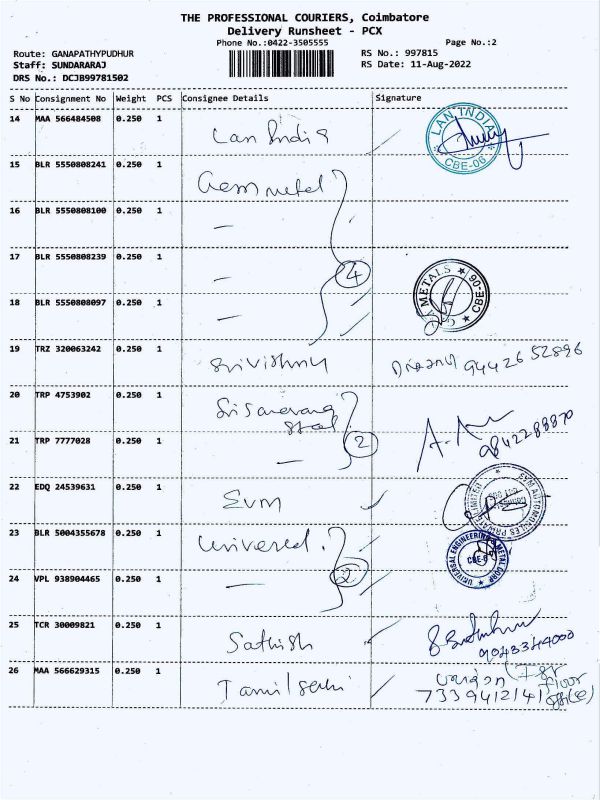 THE PROFESSIONAL COURIERS, Coimbatore
Delivery Runsheet - PCX
Phone No.:0422-3505555 Page No.:2
Route: GANAPATHYPUDHUR RS No.: 997815
Staff: SUNDARARAJ RS Date: 11-Aug-2022
DRS No.: DCJB99781502
S No Consignment No Weight PCS Consignee Details Signature
14 MAA 566484508 0.250 1 Lan India LAN INDIA CBE-06
15 BLR 5550808241 0.250 1 Gem metal
16 BLR 5550808100 0.250 1 —
17 BLR 5550808239 0.250 1 — 4 METALS CBE-06
18 BLR 5550808097 0.250 1 —
19 TRZ 320063242 0.250 1 Srivishnu 94426 52896
20 TRP 4753902 0.250 1 Sri Saravana
Steel
21 TRP 7777028 0.250 1 — 2 9842288870
22 EDQ 24539631 0.250 1 Evm EVM AUTOMOBILES PRIVATE LIMITED
23 BLR 5004355678 0.250 1 Universal. UNIVERSAL ENGINEERING & METAL CORP CBE-6
24 VPL 938904465 0.250 1 — 2
25 TCR 30009821 0.250 1 Sathish
26 MAA 566629315 0.250 1 Tamilselvi 7339412141 floor
office)